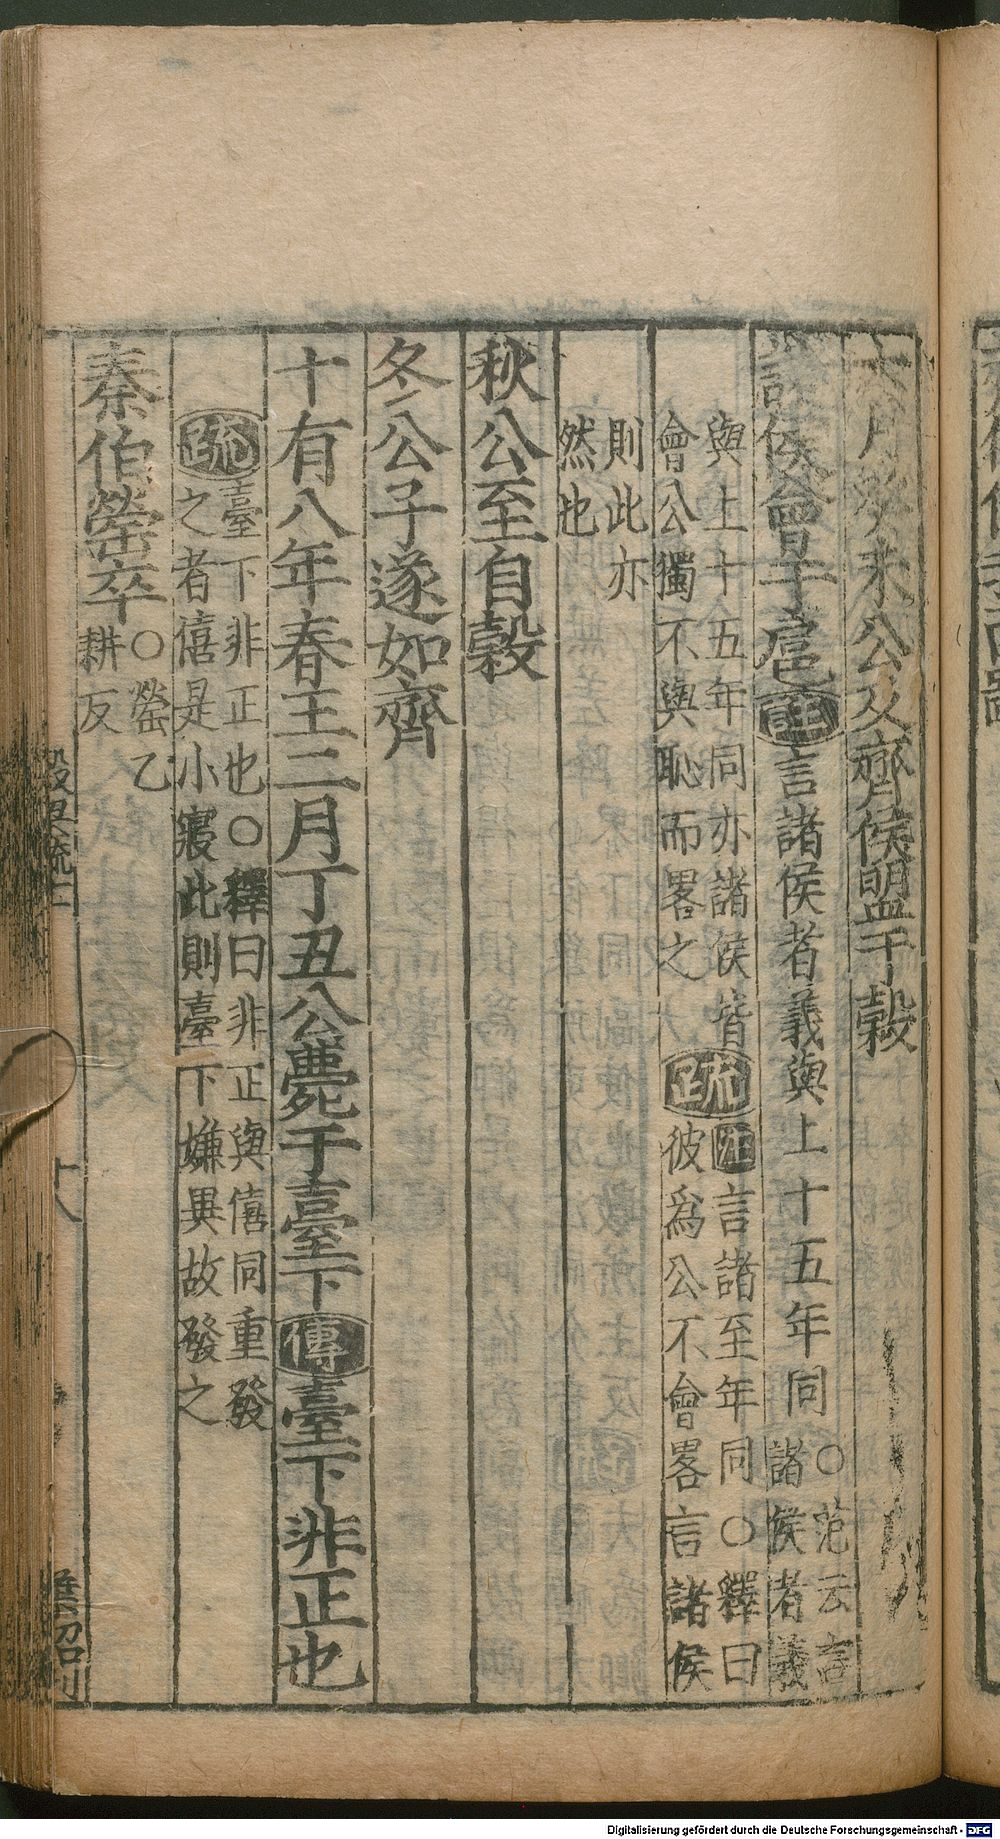 六月癸未公及齊侯盟于穀
諸侯會于扈註言諸侯者義與上十五年同○范云言
諸侯者義
與上十五年同亦諸侯皆
會公獨不與恥而畧之
疏註言諸至年同○釋曰
彼爲公不會畧言諸侯
則此亦
然也
秋公至自穀
冬公子遂如齊
十有八年春王二月丁丑公薨于臺下傳臺下非正也
疏臺下非正也○釋曰非正與僖同重發
之者僖是小寢此則臺下嫌異故發之
秦伯罃卒○罃乙
耕反
穀梁疏十一
十八
刊
Digitalisierung gefördert durch die Deutsche Forschungsgemeinschaft - DFG